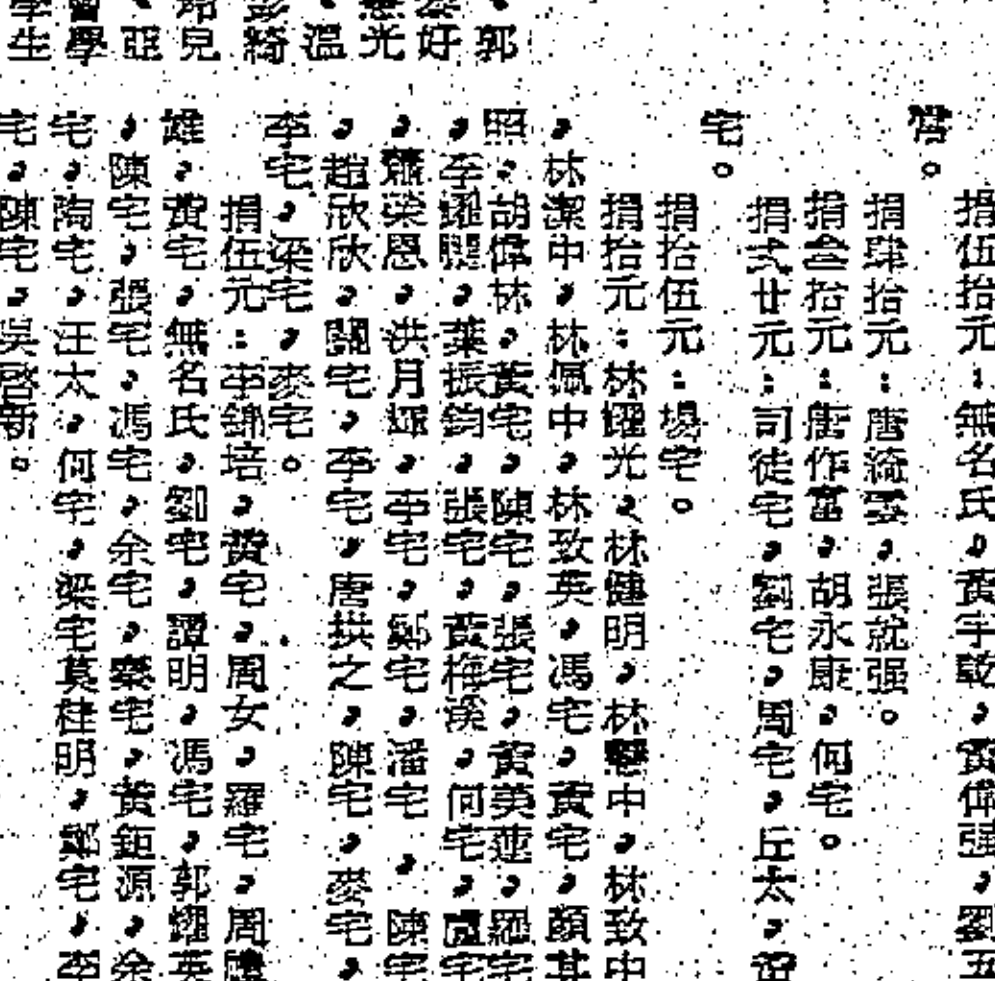 郭
好
光
溫
綺
兒
亞
學
生
捐伍拾元：無名氏，黃宇乾，黃偉强，劉五
營。
捐肆拾元：唐綺雲，張就强。
捐叁拾元：唐作富，胡永康，何宅。
捐弍廿元：司徒宅，劉宅，周宅，丘太，
宅。
捐拾伍元：楊宅。
捐拾元：林耀光，林健明，林慧中，林致中
，林潔中，林佩中，林致英，馮宅，黃宅，顏其
照，胡偉林，黃宅，陳宅，張宅，黃英蓮，羅宅
，李耀關，葉振鈞，張宅，黃梅溪，何宅，盧宅
，蕭榮恩，洪月輝，李宅，鄭宅，潘宅，陳宅
，趙欣欣，關宅，李宅，唐拱之，陳宅，麥宅，
李宅，梁宅，麥宅。
捐伍元：李錦培，黃宅，周女，羅宅，周
雄，黃宅，無名氏，劉宅，譚明，馮宅，郭耀英
，陳宅，張宅，馮宅，余宅，秦宅，黃鉅源，余
宅，陶宅，汪太，何宅，梁宅莫桂明，鄭宅，李
宅，陳宅，吳啓新。